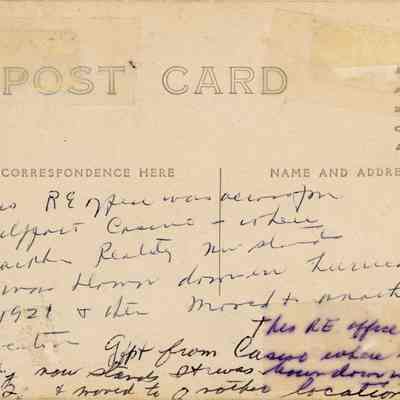 POST CARD
CORRESPONDENCE HERE
NAME AND ADDRE
RE office was across from
Gulfport Casino - where
Realty now stands
was blown down in hurric
1921 & then moved to anoth
location
This RE office
Gpt from Casino where
now stands It was blown down in
& moved to another location